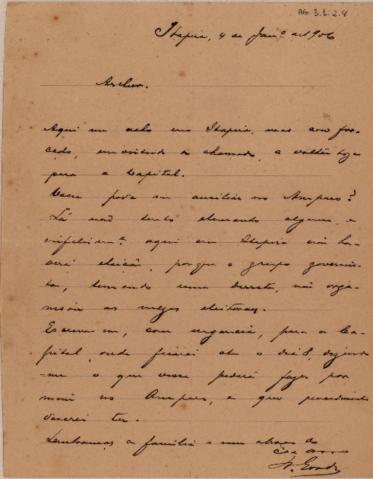 AG 3.1.2.8
Itapira, 4 de Janº de 1906
Aqui me acho em Itapira, mas sou for-
çado, em virtude de chamado, a voltar hoje
para a Capital.
pode me auxiliar no Amparo?
Lá não tenho elemento algum e
infelizm.e aqui em Itapira não ha-
verá eleição, porque o grupo governis-
ta, temendo uma derrota, não orga-
nisou as mezas eleitoraes.
Escreva-me, com urgencia, para a Ca-
pital, onde ficarei até o dia 8, dizendo
-me o que poderá fazer por
mim no Amparo, e que procedimento
deverei ter.
Lembranças á familia e um abraço do